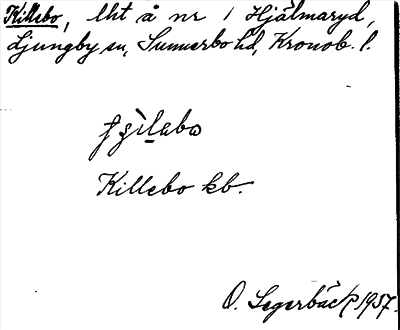 Killebo, lht å nr 1 Hjälmaryd,
Ljungby sn, Sunnerbo hd, Kronob. l.
Killebo kb.
O. Segerbäck 1937.